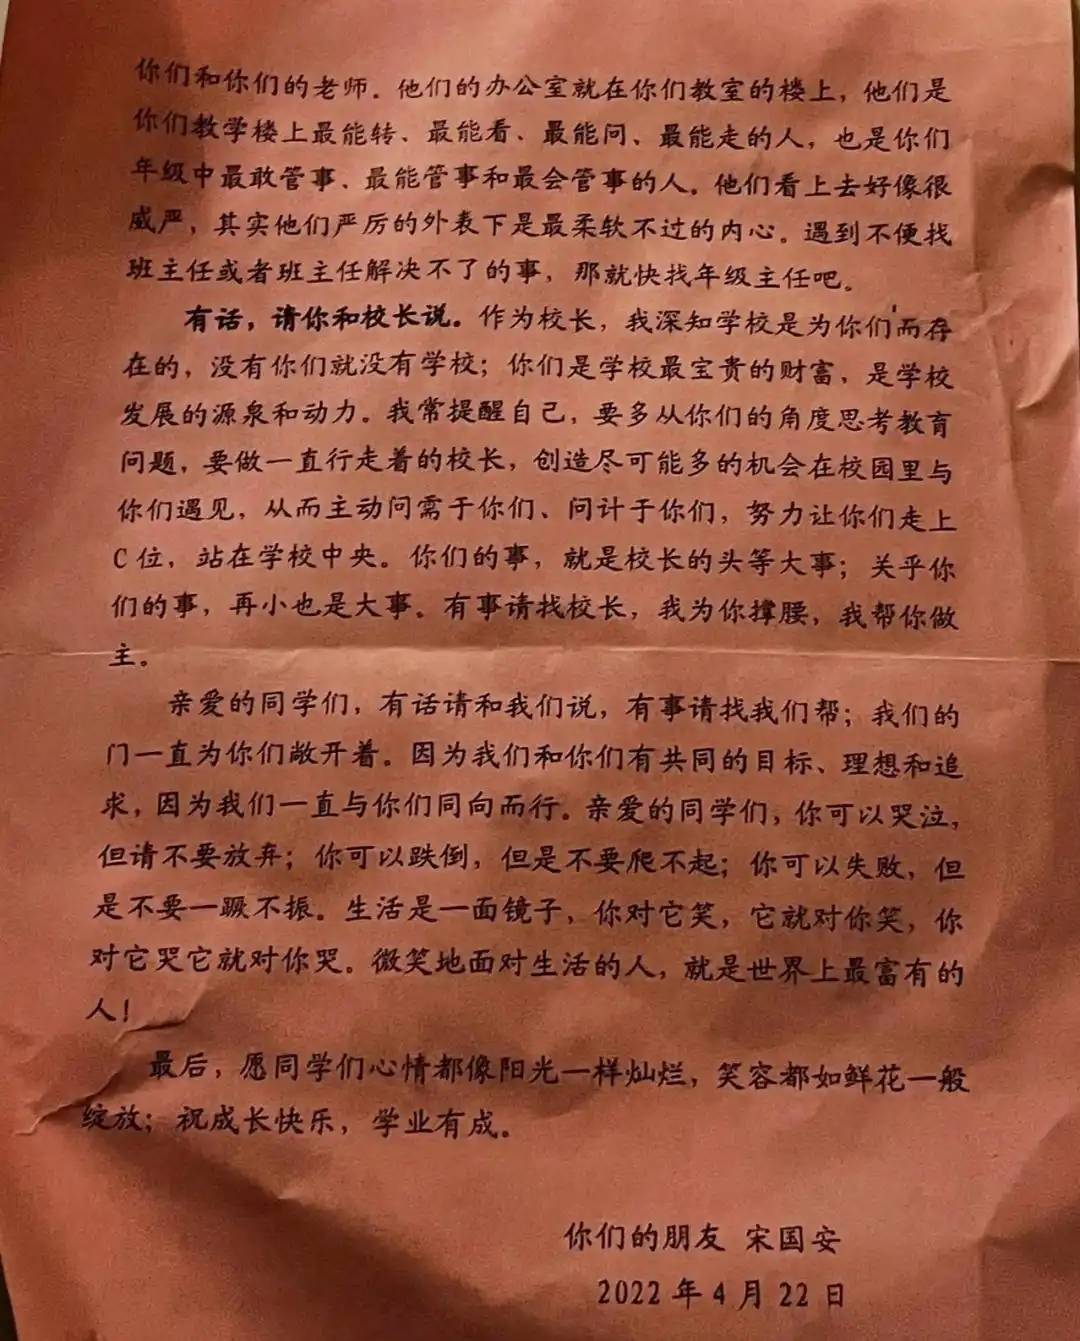 你们和你们的老师。他们的办公室就在你们教室的楼上，他们是
你们教学楼上最能转、最能看、最能问、最能走的人，也是你们
年级中最敢管事、最能管事和最会管事的人。他们看上去好像很
威严，其实他们严厉的外表下是最柔软不过的内心。遇到不便找
班主任或者班主任解决不了的事，那就快找年级主任吧。
有话，请你和校长说。作为校长，我深知学校是为你们而存
在的，没有你们就没有学校；你们是学校最宝贵的财富，是学校
发展的源泉和动力。我常提醒自己，要多从你们的角度思考教育
问题，要做一直行走着的校长，创造尽可能多的机会在校园里与
你们遇见，从而主动问需于你们、问计于你们，努力让你们走上
C位，站在学校中央。你们的事，就是校长的头等大事；关乎你
们的事，再小也是大事。有事请找校长，我为你撑腰，我帮你做
主。
亲爱的同学们，有话请和我们说，有事请找我们帮；我们的
门一直为你们敞开着。因为我们和你们有共同的目标、理想和追
求，因为我们一直与你们同向而行。亲爱的同学们，你可以哭泣，
但请不要放弃；你可以跌倒，但是不要爬不起；你可以失败，但
是不要一蹶不振。生活是一面镜子，你对它笑，它就对你笑，你
对它哭它就对你哭。微笑地面对生活的人，就是世界上最富有的
人！
最后，愿同学们心情都像阳光一样灿烂，笑容都如鲜花一般
绽放；祝成长快乐，学业有成。
你们的朋友 宋国安
2022年4月22日